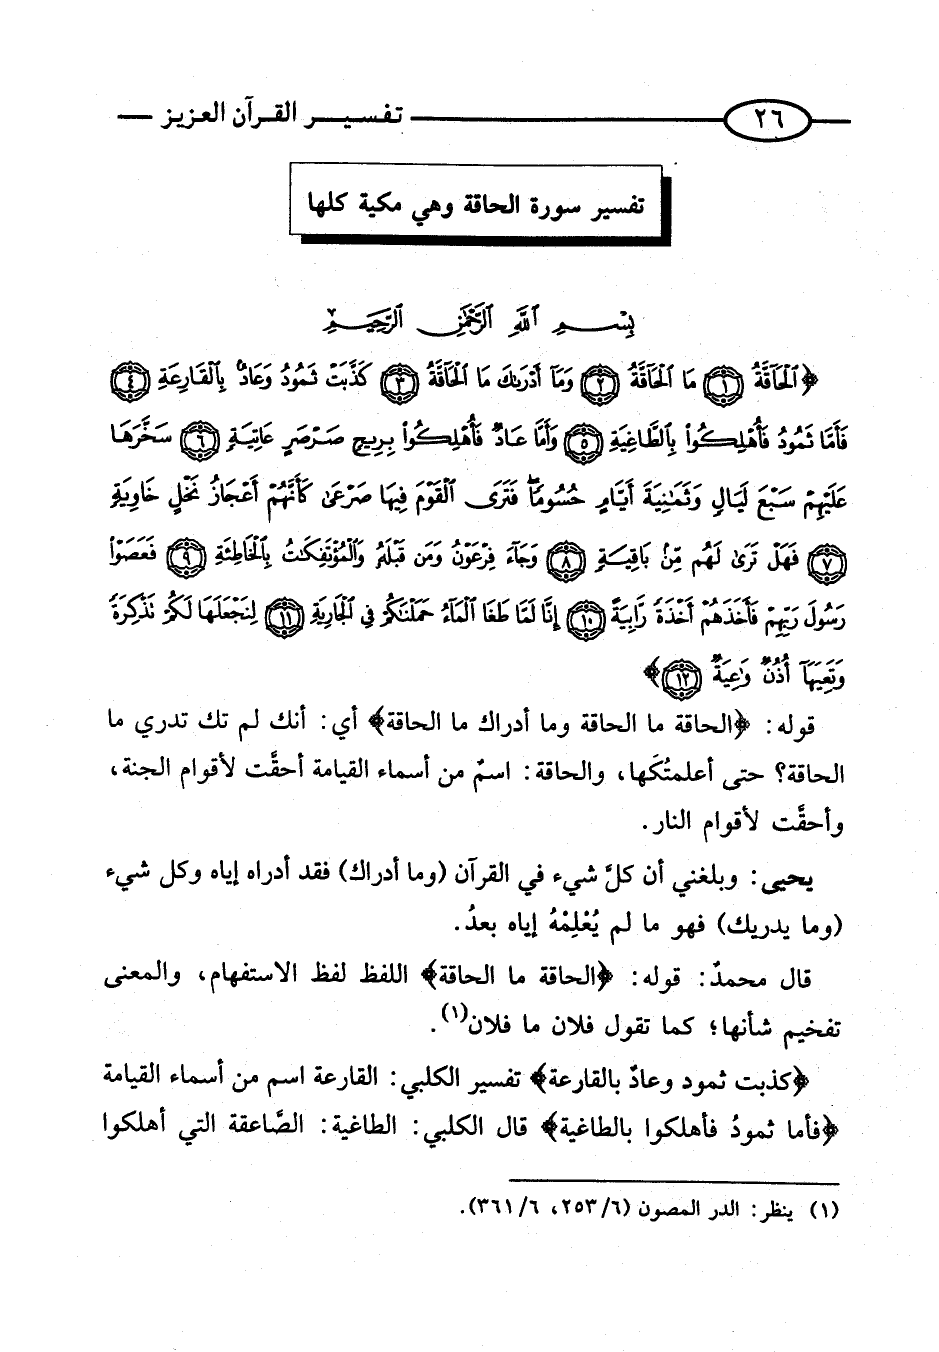 ٢٦ تفسير القرآن العزيز
تفسير سورة الحاقة وهي مكية كلها
بِسْمِ ٱللَّهِ ٱلرَّحْمَٰنِ ٱلرَّحِيمِ
﴿ٱلْحَآقَّةُ ۝١ مَا ٱلْحَآقَّةُ ۝٢ وَمَآ أَدْرَىٰكَ مَا ٱلْحَآقَّةُ ۝٣ كَذَّبَتْ ثَمُودُ وَعَادٌۢ بِٱلْقَارِعَةِ ۝٤
فَأَمَّا ثَمُودُ فَأُهْلِكُوا۟ بِٱلطَّاغِيَةِ ۝٥ وَأَمَّا عَادٌ فَأُهْلِكُوا۟ بِرِيحٍ صَرْصَرٍ عَاتِيَةٍ ۝٦ سَخَّرَهَا
عَلَيْهِمْ سَبْعَ لَيَالٍ وَثَمَٰنِيَةَ أَيَّامٍ حُسُومًا ۖ فَتَرَى ٱلْقَوْمَ فِيهَا صَرْعَىٰ كَأَنَّهُمْ أَعْجَازُ نَخْلٍ خَاوِيَةٍ
۝٧ فَهَلْ تَرَىٰ لَهُم مِّنۢ بَاقِيَةٍ ۝٨ وَجَآءَ فِرْعَوْنُ وَمَن قَبْلَهُۥ وَٱلْمُؤْتَفِكَٰتُ بِٱلْخَاطِئَةِ ۝٩ فَعَصَوْا۟
رَسُولَ رَبِّهِمْ فَأَخَذَهُمْ أَخْذَةً رَّابِيَةً ۝١٠ إِنَّا لَمَّا طَغَا ٱلْمَآءُ حَمَلْنَٰكُمْ فِى ٱلْجَارِيَةِ ۝١١ لِنَجْعَلَهَا لَكُمْ تَذْكِرَةً
وَتَعِيَهَآ أُذُنٌ وَٰعِيَةٌ ۝١٢﴾
قوله: ﴿الحاقة ما الحاقة وما أدراك ما الحاقة﴾ أي: أنك لم تك تدري ما
الحاقة؟ حتى أعلمتُكَها، والحاقة: اسمٌ من أسماء القيامة أحقَّت لأقوام الجنة،
وأحقَّت لأقوام النار.
يحيى: وبلغني أن كلَّ شيء في القرآن (وما أدراك) فقد أدراه إياه وكل شيء
(وما يدريك) فهو ما لم يُعْلِمْهُ إياه بعدُ.
قال محمدٌ: قوله: ﴿الحاقة ما الحاقة﴾ اللفظ لفظ الاستفهام، والمعنى
تفخيم شأنها؛ كما تقول فلان ما فلان(١).
﴿كذبت ثمود وعادٌ بالقارعة﴾ تفسير الكلبي: القارعة اسم من أسماء القيامة
﴿فأما ثمودُ فأهلكوا بالطاغية﴾ قال الكلبي: الطاغية: الصَّاعقة التي أهلكوا
(١) ينظر: الدر المصون (٦/ ٢٥٣، ٦/ ٣٦١).